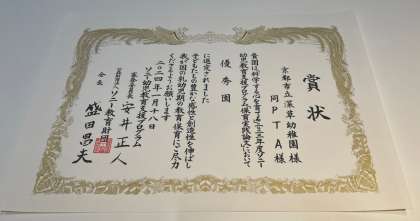 賞状
京都市立深草幼稚園様
同PTA様
貴園は「科学する心を育てる」二〇二三年度ソニー
幼児教育支援プログラム保育実践論文において
優秀園
に選定されました
子どもたちの豊かな感性と創造性を伸ばし
我が国の乳幼児期の教育保育にご尽力
くださるようお願いします
二〇二四年一月十八日
ソニー幼児教育支援プログラム
審査委員長 安井正人
公益財団法人ソニー教育財団
会長 盛田昌夫